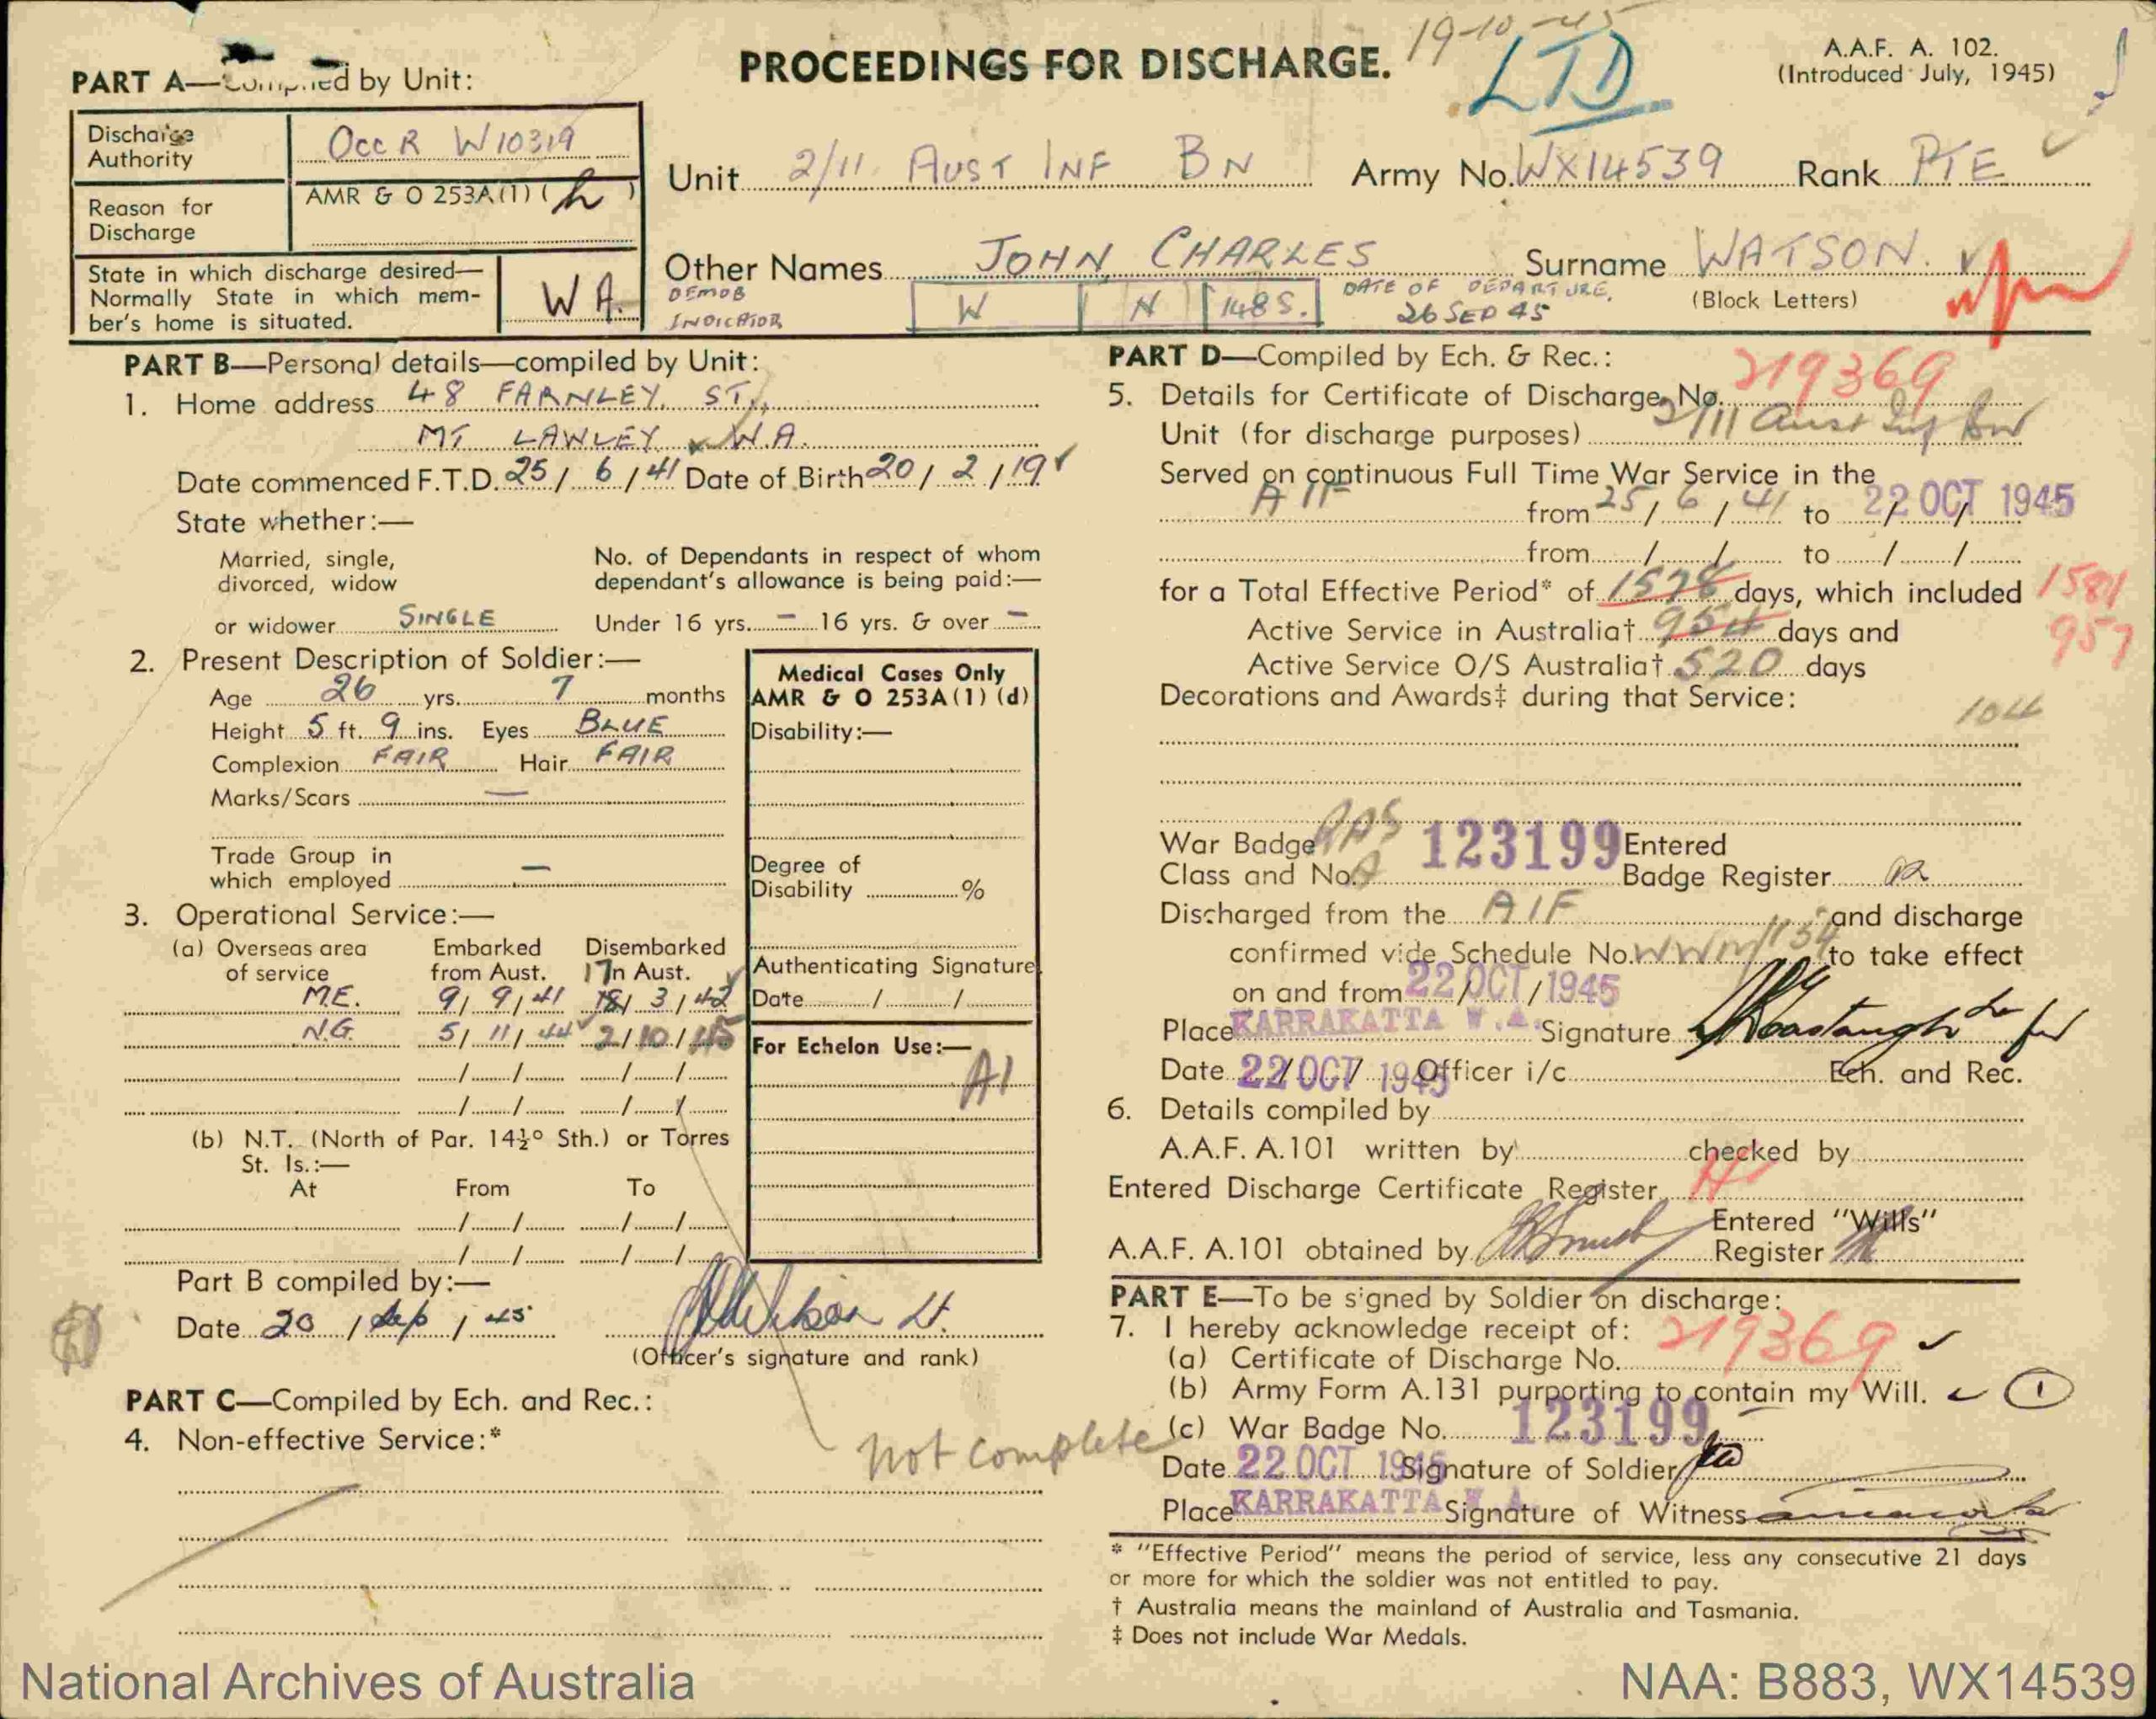 19-10-45
PROCEEDINGS FOR DISCHARGE.
LTD
A.A.F. A. 102.
(Introduced July, 1945)
PART A—Compiled by Unit:
Discharge Authority Occ R W10319
Reason for Discharge AMR & O 253A(1) (h)
State in which discharge desired—
Normally State in which mem-
ber's home is situated. W A.
Unit 2/11 AUST INF BN Army No. WX14539 Rank PTE
Other Names JOHN CHARLES Surname WATSON.
(Block Letters)
DEMOB
INDICATOR W N 148S. DATE OF DEPARTURE.
26 SEP 45
PART B—Personal details—compiled by Unit:
1. Home address 48 FARNLEY. ST.,
MT LAWLEY W.A.
Date commenced F.T.D. 25/6/41 Date of Birth 20/2/19
State whether:—
Married, single,
divorced, widow
or widower SINGLE
No. of Dependants in respect of whom
dependant's allowance is being paid:—
Under 16 yrs. – 16 yrs. & over –
2. Present Description of Soldier:—
Age 26 yrs. 7 months
Height 5 ft. 9 ins. Eyes BLUE
Complexion FAIR Hair FAIR
Marks/Scars —
Trade Group in
which employed —
3. Operational Service:—
(a) Overseas area
of service
Embarked
from Aust.
Disembarked
in Aust.
17
M.E. 9/9/41 18/3/42
N.G. 5/11/44 2/10/45
(b) N.T. (North of Par. 14½° Sth.) or Torres
St. Is.:—
At From To
Part B compiled by:—
Date 20/Sep/45
(Officer's signature and rank)
Medical Cases Only
AMR & O 253A(1) (d)
Disability:—
Degree of
Disability %
Authenticating Signature
Date / /
For Echelon Use:—
A1
PART C—Compiled by Ech. and Rec.:
4. Non-effective Service:*
not complete
PART D—Compiled by Ech. & Rec.:
5. Details for Certificate of Discharge, No. 219369
Unit (for discharge purposes) 2/11 Aust Inf Bn
Served on continuous Full Time War Service in the
AIF from 25/6/41 to 22 OCT 1945
from / / to / /
for a Total Effective Period* of 1578 days, which included 1581
Active Service in Australia† 954 days and 957
Active Service O/S Australia† 520 days
Decorations and Awards‡ during that Service:
104
War Badge RAS 123199 Entered
Class and No. A Badge Register
Discharged from the AIF and discharge
confirmed vide Schedule No. WWM/134 to take effect
on and from 22 OCT 1945
Place KARRAKATTA W.A. Signature
Date 22 OCT 1945 Officer i/c Ech. and Rec.
6. Details compiled by
A.A.F. A.101 written by checked by
Entered Discharge Certificate Register
Entered "Wills"
A.A.F. A.101 obtained by Register
PART E—To be signed by Soldier on discharge:
7. I hereby acknowledge receipt of:
(a) Certificate of Discharge No. 219369
(b) Army Form A.131 purporting to contain my Will. 1
(c) War Badge No. 123199
Date 22 OCT 1945 Signature of Soldier
Place KARRAKATTA W.A. Signature of Witness
* "Effective Period" means the period of service, less any consecutive 21 days
or more for which the soldier was not entitled to pay.
† Australia means the mainland of Australia and Tasmania.
‡ Does not include War Medals.
National Archives of Australia
NAA: B883, WX14539